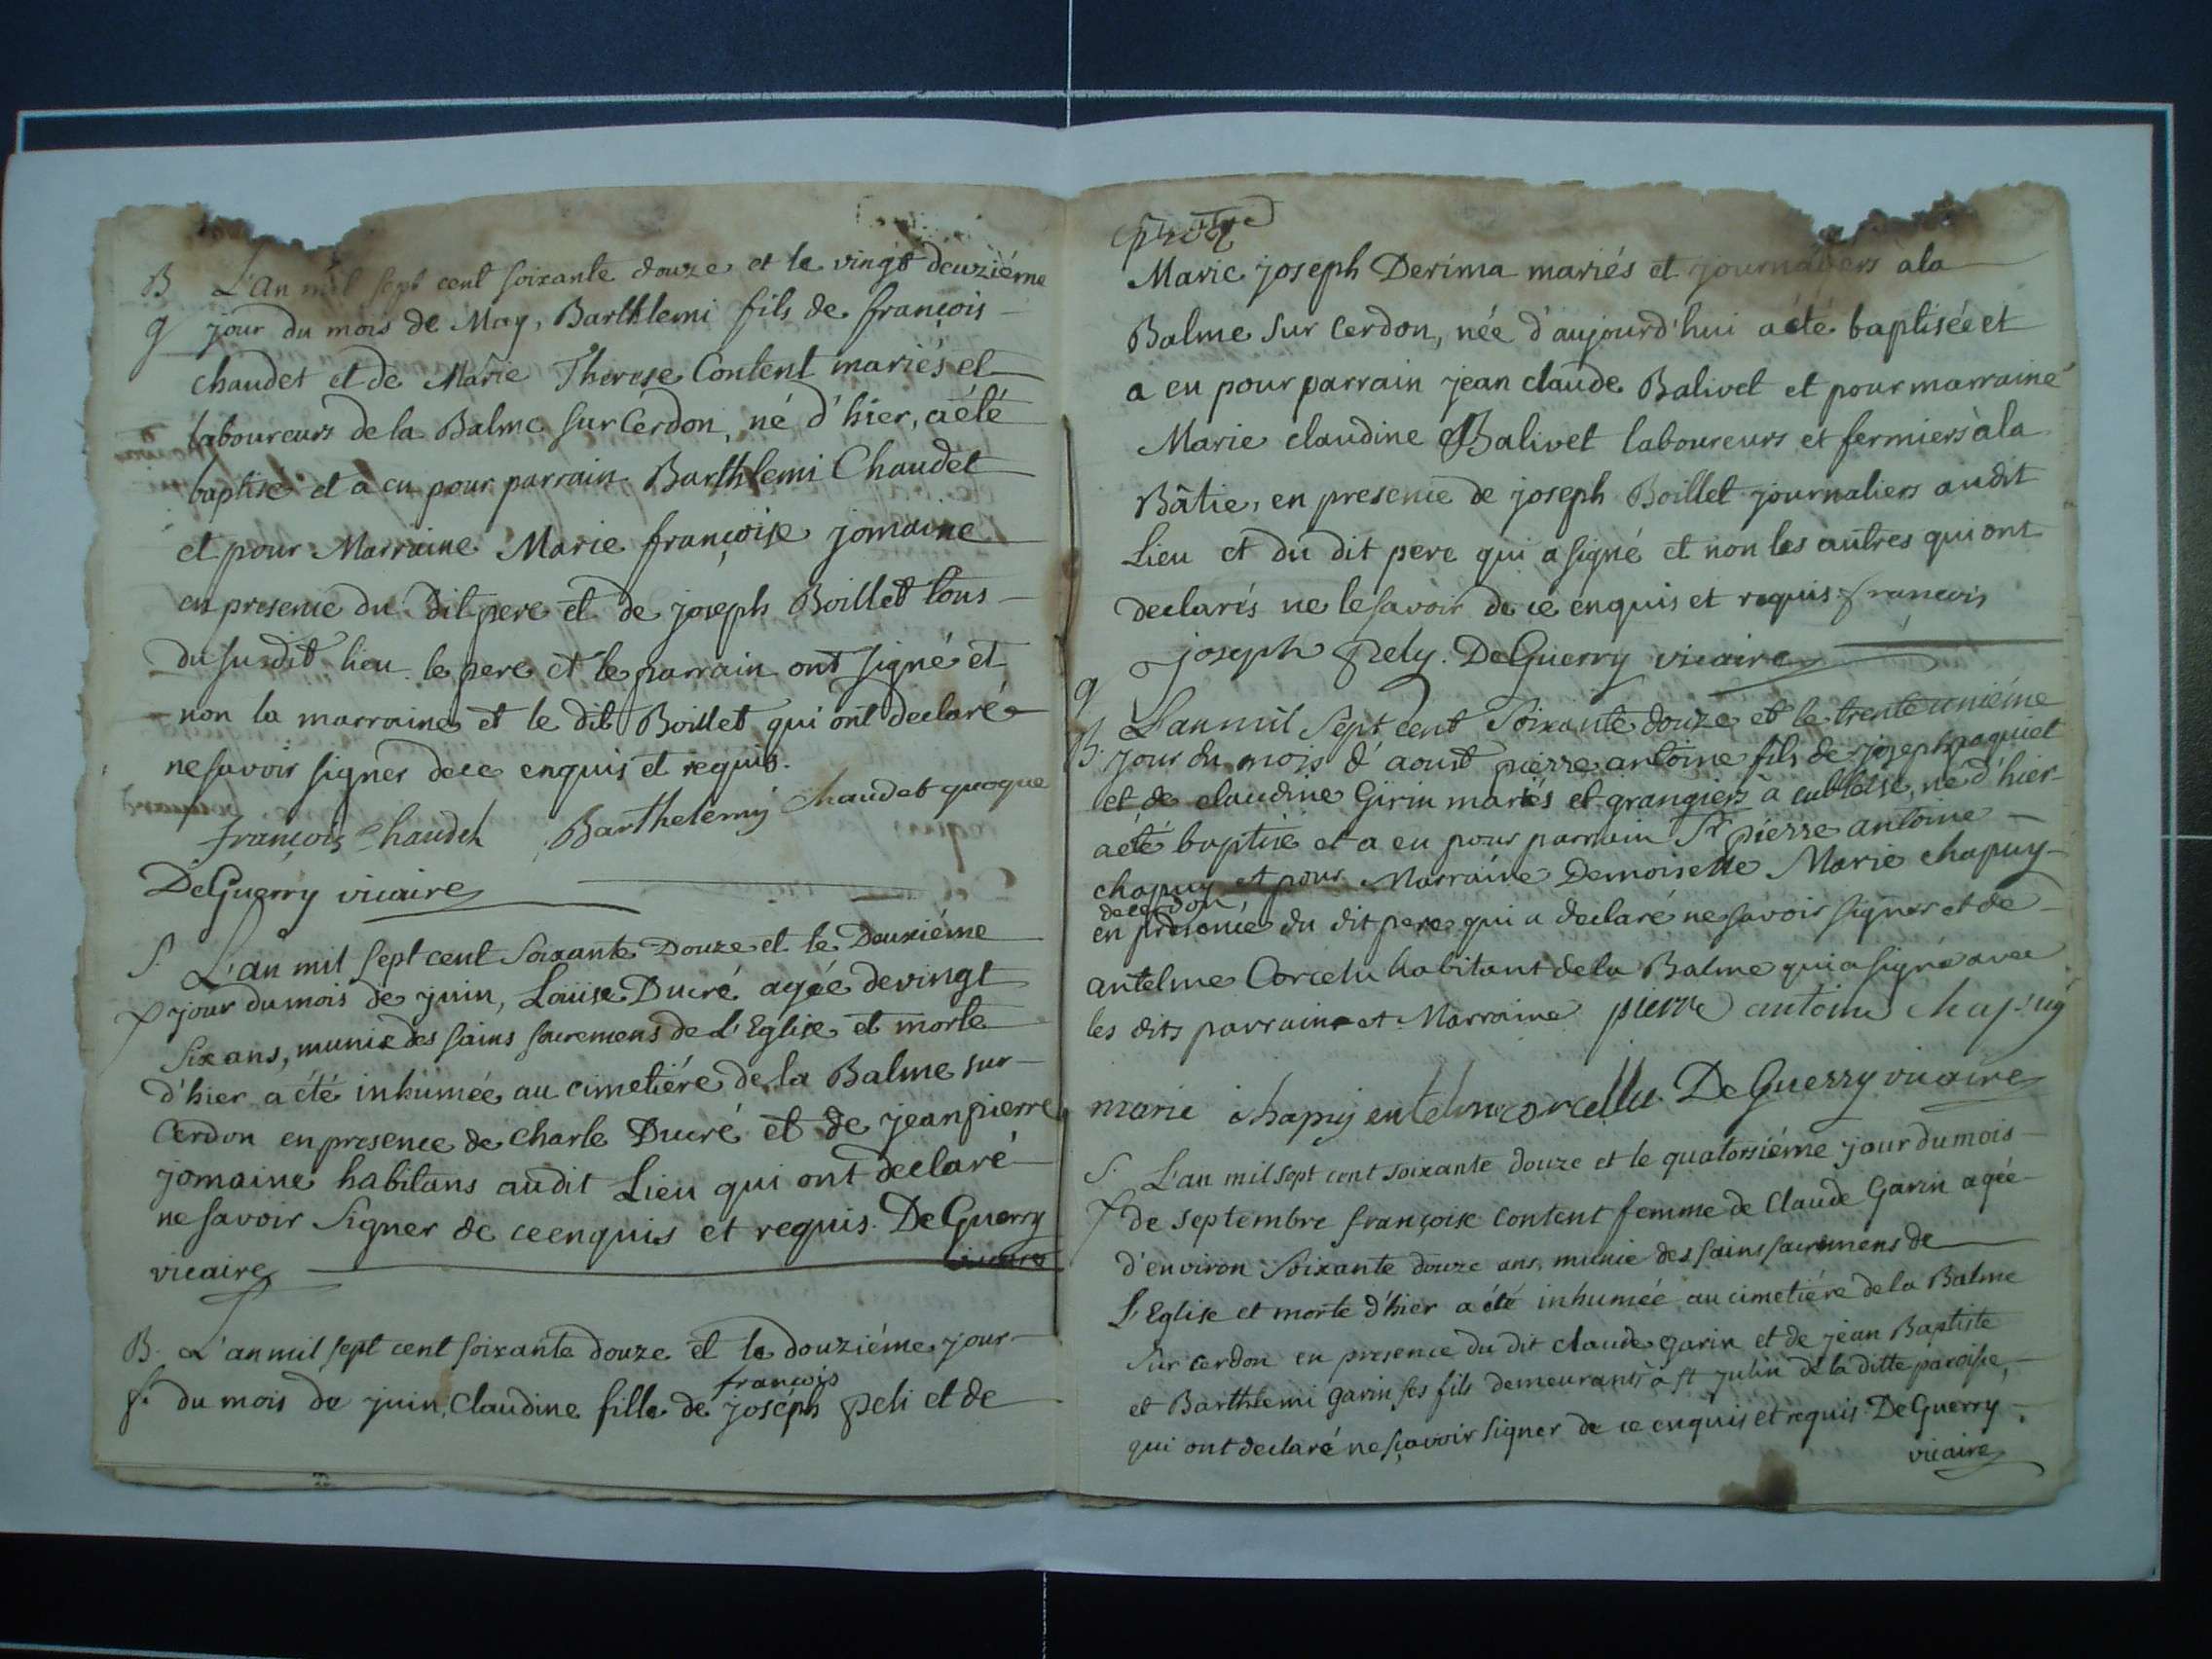 B L'An mil sept cent soixante douze et le vingt deuziéme
g jour du mois de May, Barthlemi fils de françois
chaudet et de Marie Therese Content mariés et
laboureurs de la Balme sur Cerdon, né d'hier, a été
baptisé et a eu pour parrain Barthlemi Chaudet
et pour Marraine Marie françoise jomaine
en presence du dit pere et de joseph Boillet tous
du susdit lieu le pere et le parrain ont signé et
non la marraine et le dit Boillet qui ont declaré
ne savoir signer de ce enquis et requis.
françois chaudet Barthelemy Chaudet quoque
DeGuerry vicaire
S. L'an mil sept cent Soixante Douze et le Deuxiéme
f jour du mois de juin, Loüise Ducré agée de vingt
six ans, munie des sains sacremens de L'Eglise et morte
d'hier a été inhumée au cimetiére de la Balme sur
Cerdon en presence de Charle Ducré et de jean pierre
jomaine habitans audit Lieu qui ont declaré
ne savoir signer de ce enquis et requis. DeGuerry
vicaire
B. L'an mil sept cent soixante douze et le douziéme jour
françois
f. du mois de juin, Claudine fille de joseph peli et de
Marie joseph Derima mariés et journayers a la
Balme sur Cerdon, née d'aujourd'hui a été baptisée et
a eu pour parrain jean claude Balivet et pour marraine
Marie claudine Balivet laboureurs et fermiers à la
Bâtie, en presence de joseph Boillet journaliers audit
Lieu et du dit pere qui a signé et non les autres qui ont
declarés ne le savoir de ce enquis et requis. françois
joseph pely. DeGuerry vicaire
g L'an mil Sept Cent Soixante douze et le trente uniéme
B. jour du mois d'aoust pierre antoine fils de joseph paquiet
et de claudine Girin mariés et grangiers à cubloise, né d'hier
a été baptisé et a eu pour parrain Sr pierre antoine
chapuy et pour Marraine Demoiselle Marie chapuy
de cerdon
en presence du dit pere qui a declaré ne savoir signer et de
antelme Corcelu habitant de la Balme qui a signé avec
les dits parrain et Marraine pierre antoine chapuy
marie chapuy entelme corcellu. DeGuerry vicaire
S. L'an mil sept cent soixante douze et le quatorsiéme jour du mois
f de septembre françoise Content femme de Claude Garin agée
d'environ Soixante douze ans, munie des sains sacremens de
L'Eglise et morte d'hier a été inhumée au cimetiére de la Balme
sur Cerdon en presence du dit claude garin et de jean Baptiste
et Barthlemi garin ses fils demeurants à st julin de la ditte paroisse,
qui ont declaré ne sçavoir signer de ce enquis et requis DeGuerry
vicaire